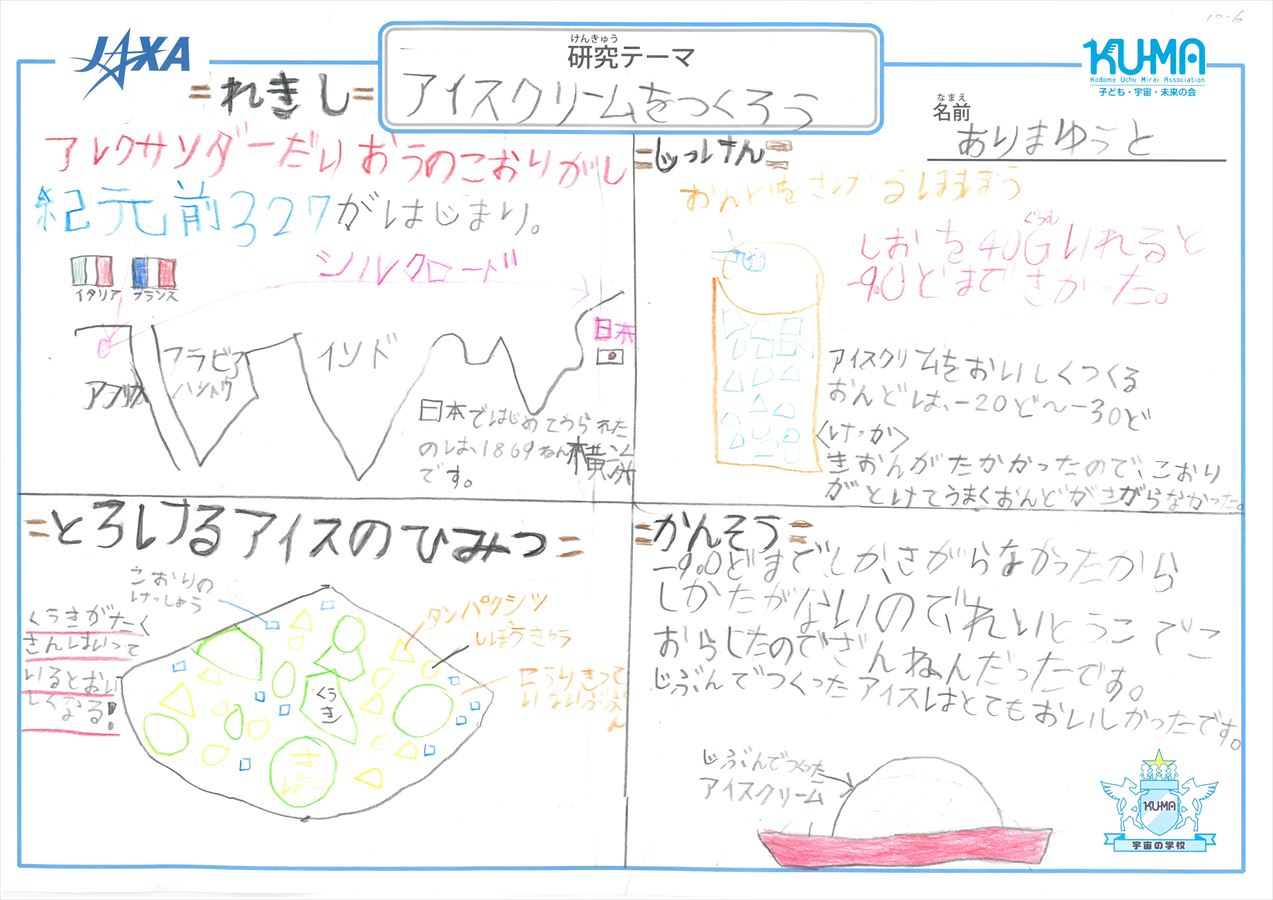 17-6
JAXA
けんきゅう
研究テーマ
アイスクリームをつくろう
KUMA
Kodomo Uchu Mirai Association
子ども・宇宙・未来の会
なまえ
名前
ありまゆうと
=れきし=
アレクサンダーだいおうのこおりがし
紀元前327がはじまり。
イタリア
フランス
シルクロード
アフリカ
アラビア
ハントウ
インド
日本
日本ではじめてうられた
のは、1869ねん横浜
です。
=じっけん=
おんどをさげるほうほう
ぐらむ
しおを40Gいれると
-9.0どまでさがった。
アイスクリームをおいしくつくる
おんどは、-20ど〜-30ど
<けっか>
きおんがたかかったので、こおり
がとけてうまくおんどがさがらなかった。
=とろけるアイスのひみつ=
こおりの
けっしょう
くうきがたく
さんはいって
いるとおい
しくなる!
タンパクシツ
しぼうきゅう
こおりきって
いないぶぶん
くうき
きほう
=かんそう=
-9.0どまでしか、さがらなかったから
しかたがないので、れいとうこでこ
おらしたのでざんねんだったです。
じぶんでつくったアイスはとてもおいしかったです。
じぶんでつくった
アイスクリーム
KUMA
宇宙の学校